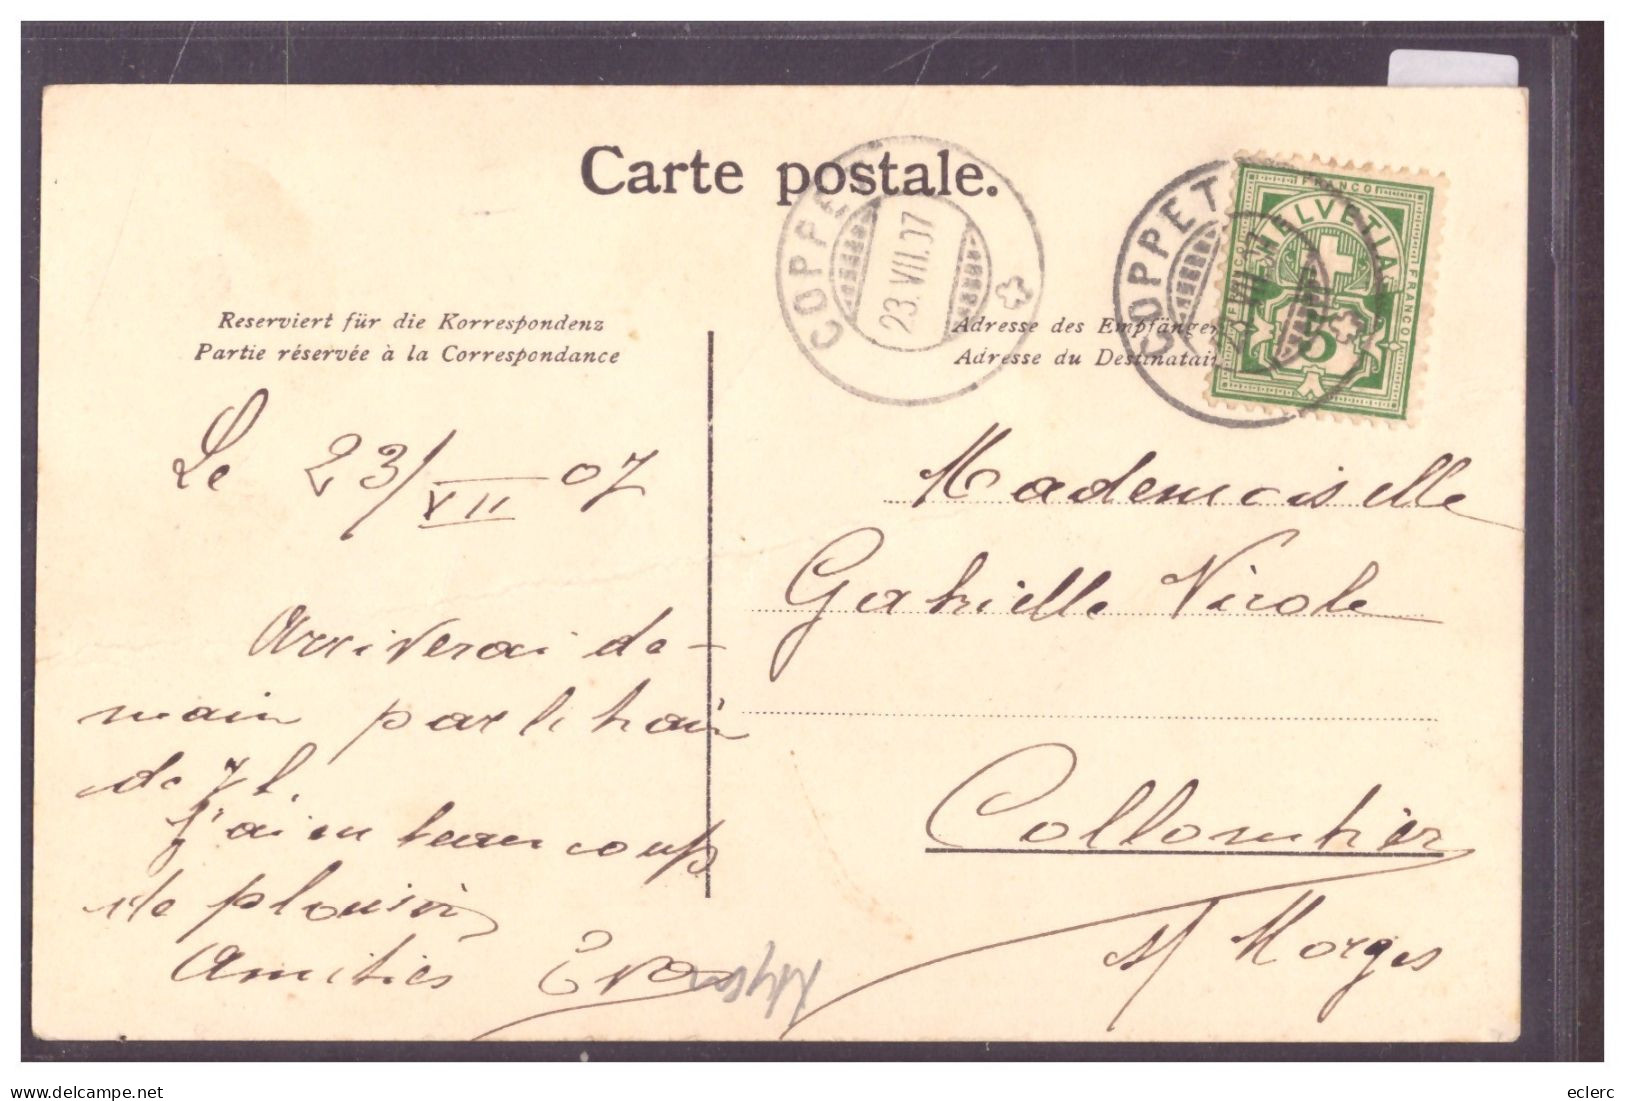 Carte postale.
COPPET
23.VII.07
COPPET
FRANCO
HELVETIA
FRANCO
FRANCO
5
Reserviert für die Korrespondenz
Partie réservée à la Correspondance
Adresse des Empfänger
Adresse du Destinatai
Le 23/VII 07
Arriverai de-
main par le train
de 7 h.
J'ai eu beaucoup
de plaisir
Amitiés Eva
Mademoiselle
Gabrielle Virole
Collombier
s/ Morges
eclerc